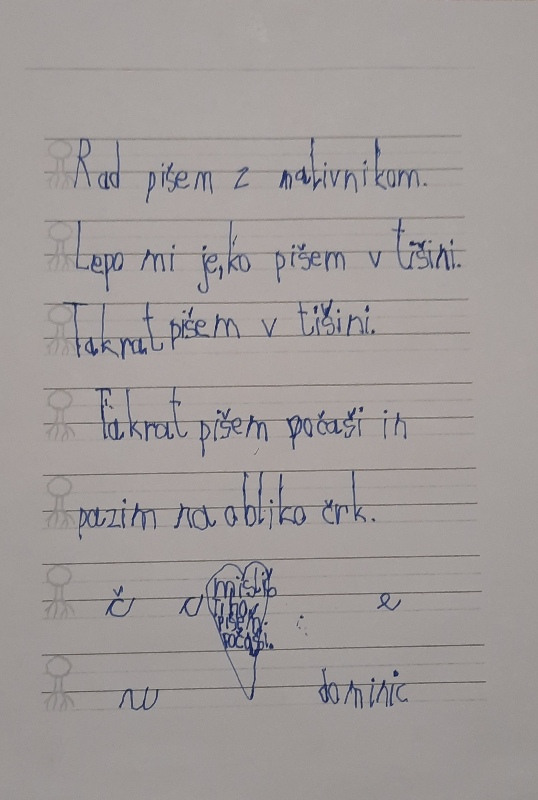 Rad pišem z nalivnikom.
Lepo mi je, ko pišem v tišini.
Takrat pišem v tišini.
Takrat pišem počaši in
pazim na obliko črk.
č v e
mišlib
tiho
pišem.
počaši.
w dominic